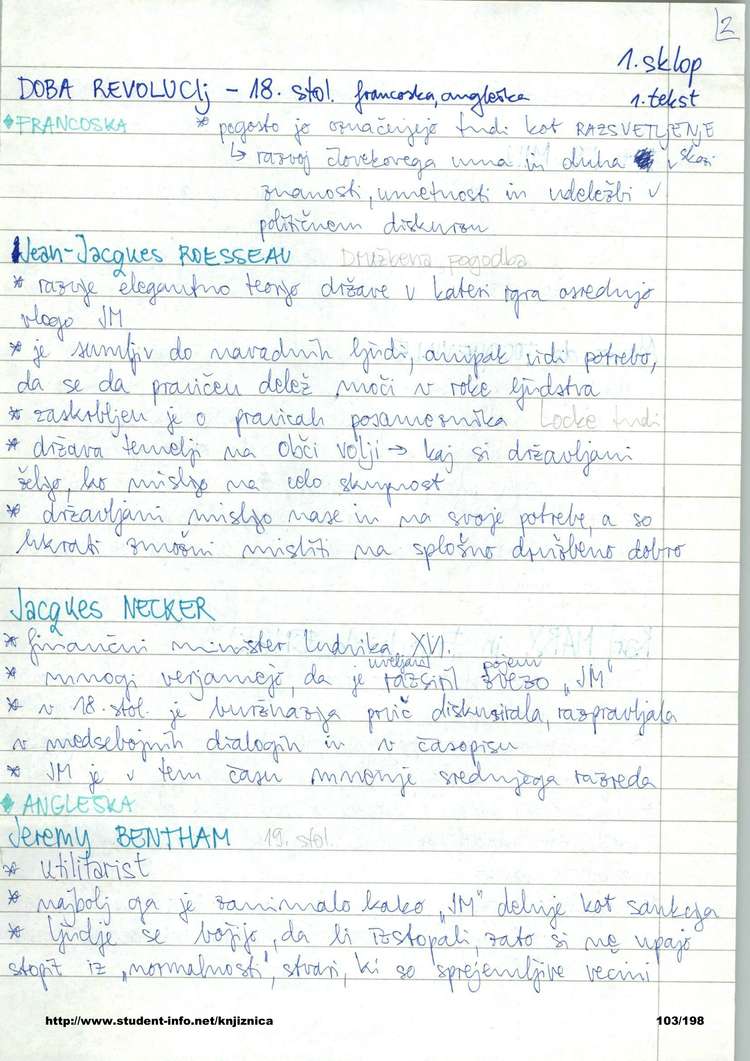 2
1. sklop
DOBA REVOLUCIJ - 18. stol. francoska, angleška 1. tekst
FRANCOSKA * pogosto jo označujejo tudi kot RAZSVETLJENJE
↳ razvoj človekovega uma in duha skozi
znanosti, umetnosti in udeležbi v
političnem diskurzu
Jean-Jacques ROESSEAU Družbena pogodba
* razvije elegantno teorijo države v kateri igra osrednjo
vlogo JM
* je sumljiv do navadnih ljudi, ampak vidi potrebo,
da se da pravičen delež moči v roke ljudstva
* zaskrbljen je o pravicah posameznika Locke tudi
* država temelji na obči volji → kaj si državljani
želijo, ko mislijo na celo skupnost
* državljani mislijo nase in na svoje potrebe, a so
hkrati zmožni misliti na splošno družbeno dobro
Jacques NECKER
* finančni minister Ludvika XVI.
uveljavil pojem
* mnogi verjamejo, da je razširil zvezo „JM"
* v 18. stol. je buržoazija prvič diskusirala, razpravljala
v medsebojnih dialogih in v časopisu
* JM je v tem času mnenje srednjega razreda
ANGLEŠKA
Jeremy BENTHAM 19. stol.
* utilitarist
* najbolj ga je zanimalo kako „JM" deluje kot sankcija
* ljudje se bojijo, da bi izstopali, zato si ne upajo
stopit iz „normalnosti", stvari, ki so sprejemljive večini
http://www.student-info.net/knjiznica 103/198